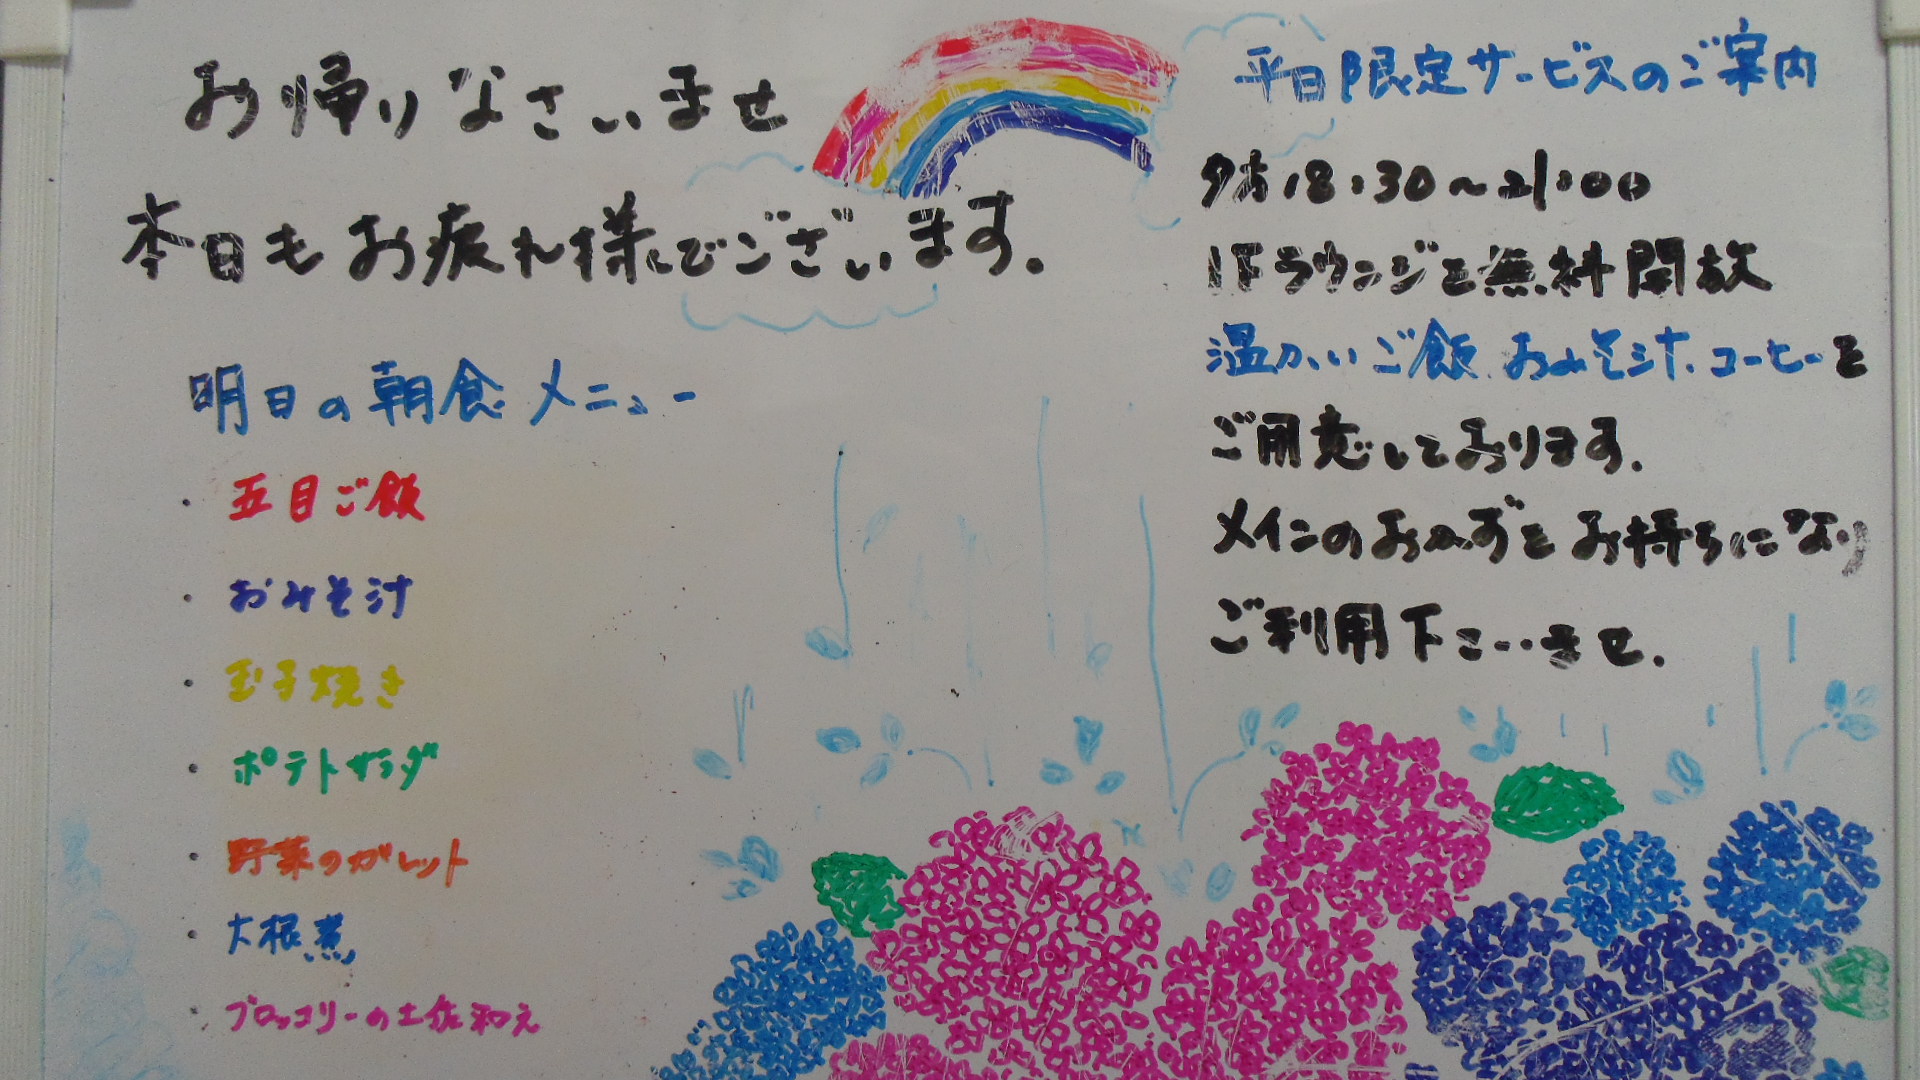 お帰りなさいませ
本日もお疲れ様でございます.
明日の朝食メニュー
・五目ご飯
・おみそ汁
・玉子焼き
・ポテトサラダ
・野菜のガレット
・大根煮
・ブロッコリーの土佐和え
平日限定サービスのご案内
夕方18:30～21:00
1Fラウンジを無料開放
温かいご飯、おみそ汁、コーヒーを
ご用意しております.
メインのおかずをお持ちになり
ご利用下さいませ.